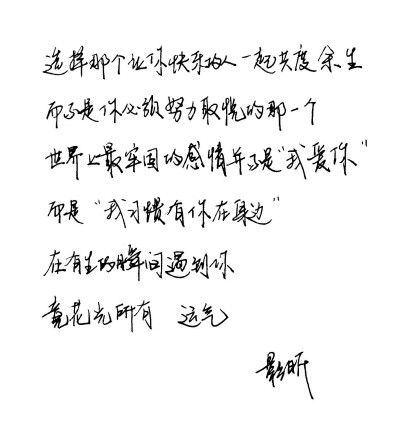 选择那个让你快乐的人一起共度余生
而不是你必须努力取悦的那一个
世界上最牢固的感情并不是“我爱你”
而是“我习惯有你在身边”
在有生的瞬间遇到你
竟花光所有 运气